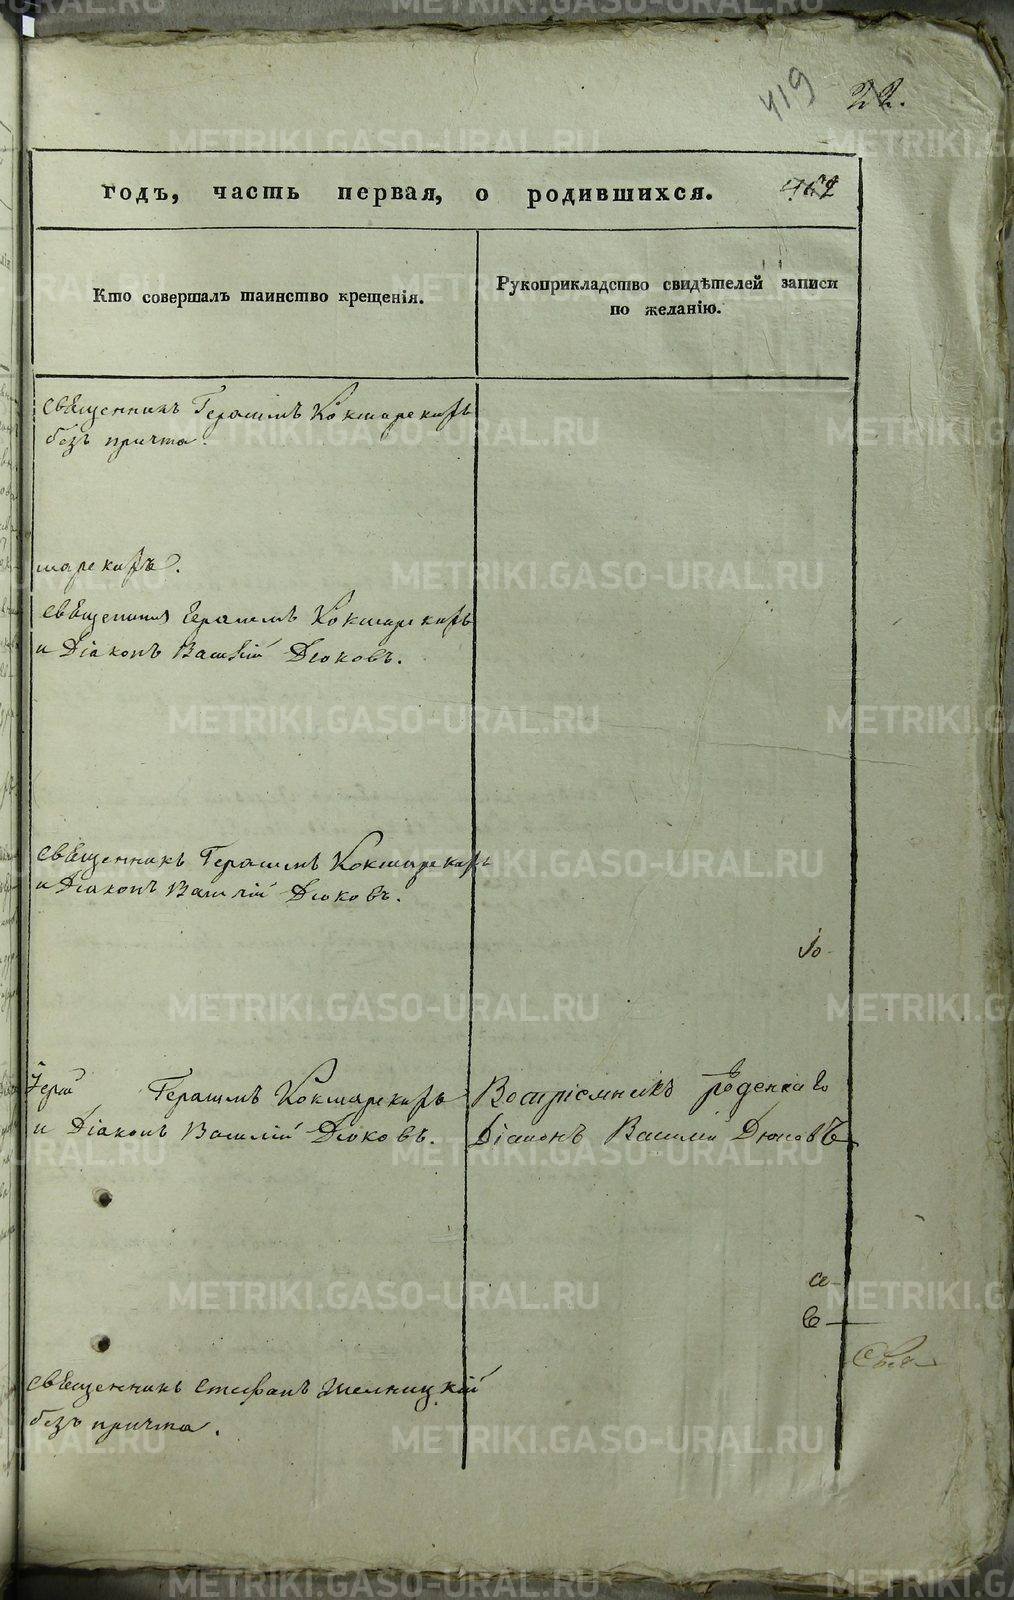 419 22.
годъ, часть первая, о родившихся. 462
Кто совершалъ таинство крещенія.
Рукоприкладство свидѣтелей записи
по желанію.
священникъ Герасимъ Кокшарскій
безъ причта.
шарскій.
священникъ Герасимъ Кокшарскій
и Діаконъ Василій Дюковъ.
священникъ Герасимъ Кокшарскій
и Діаконъ Василій Дюковъ.
Іерей Герасимъ Кокшарскій
и Діаконъ Василій Дюковъ.
Воспріемникъ
Діаконъ Василій Дюковъ
а
в
священникъ Стефанъ
безъ причта.
METRIKI.GASO-URAL.RU